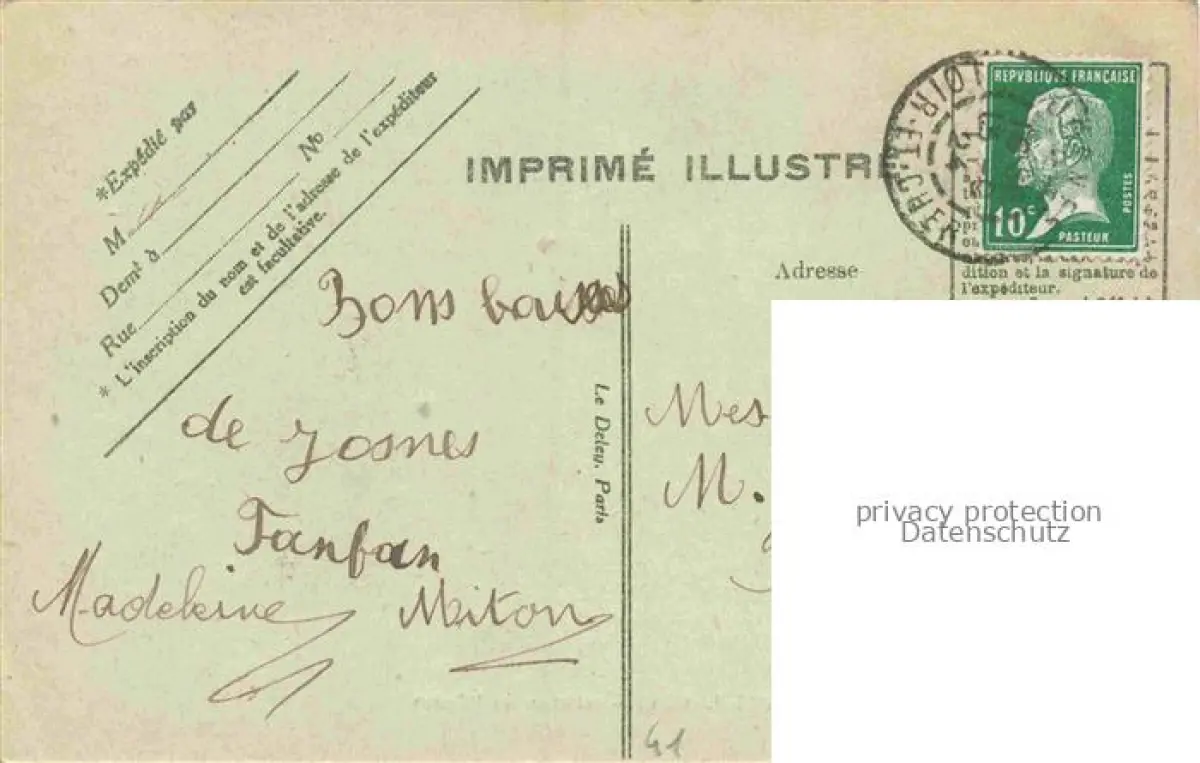 *Expédié par
M
Demt à
Rue No
* L'inscription du nom et de l'adresse de l'expéditeur
est facultative.
IMPRIMÉ ILLUSTRÉ
REPVBLIQUE FRANÇAISE
10c
POSTES
PASTEUR
LOIR-ET-CHER
Adresse
dition et la signature de
l'expéditeur.
Bons baises
de Josnes
Fanfan
Madeleine Miton
Le Deley, Paris
Mes
M.
privacy protection
Datenschutz
41